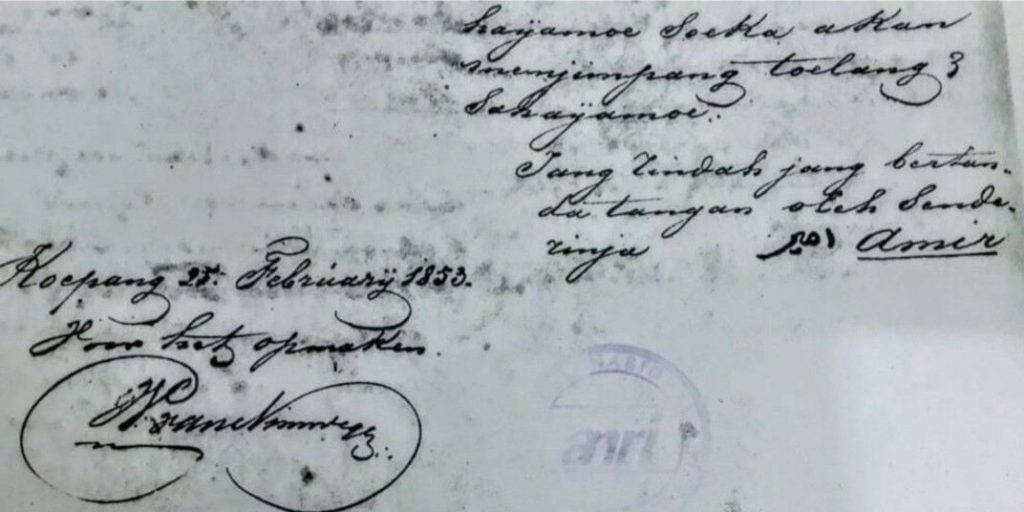 hayamoe Soeka akan
menjimpang toelang 2
Sahayamoe.
Jang rindah jang bertan-
da tangan oleh Sende-
rinja امير Amir
Koepang 25. Februarÿ 1853.
Voor het opmaken.
anri